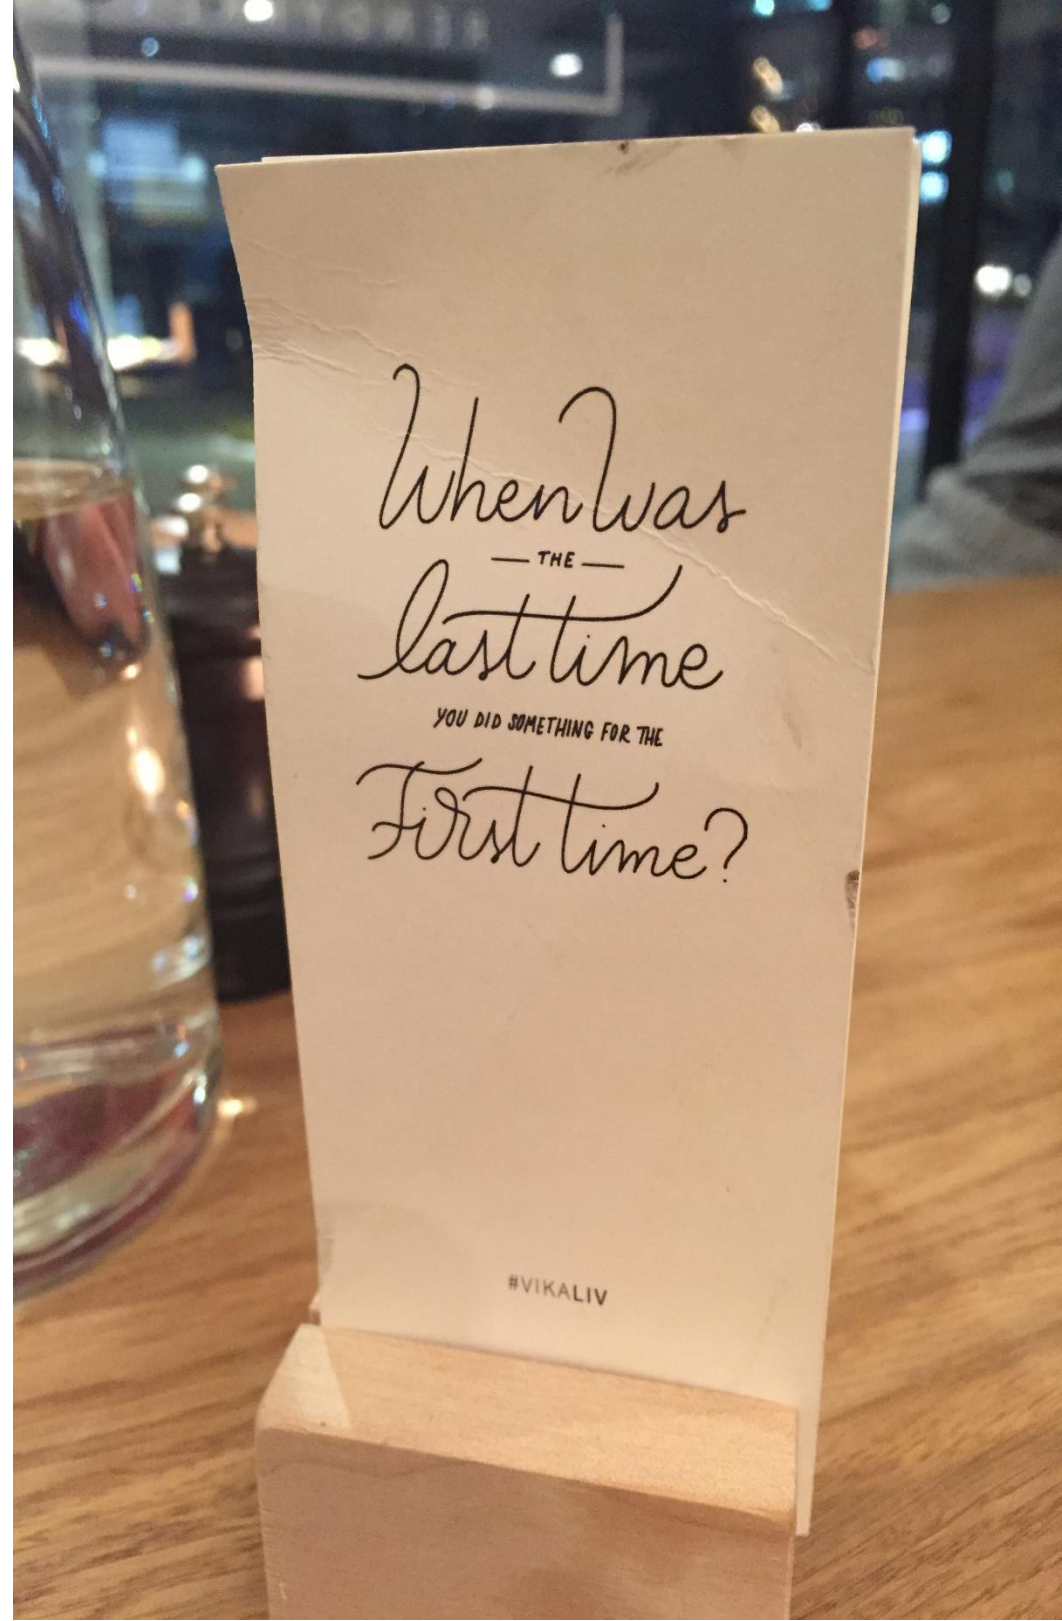 When Was
THE
last time
YOU DID SOMETHING FOR THE
First time?
#VIKALIV